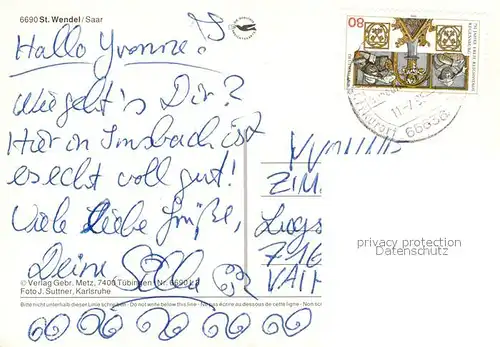 6690 St. Wendel/Saar
Hallo Yvonne!
Wie geht's Dir?
Hier in Imsbach ist
es echt voll gut!
Viele liebe Grüße,
Deine
80
11.-7.
66636
ZIM
716
privacy protection
Datenschutz
© Verlag Gebr. Metz, 7400 Tübingen Nr. 6690
Foto J. Suttner, Karlsruhe
Bitte nicht unterhalb dieser Linie schreiben - Do not write below this line - Ne pas écrire au dessous de cette ligne - Non